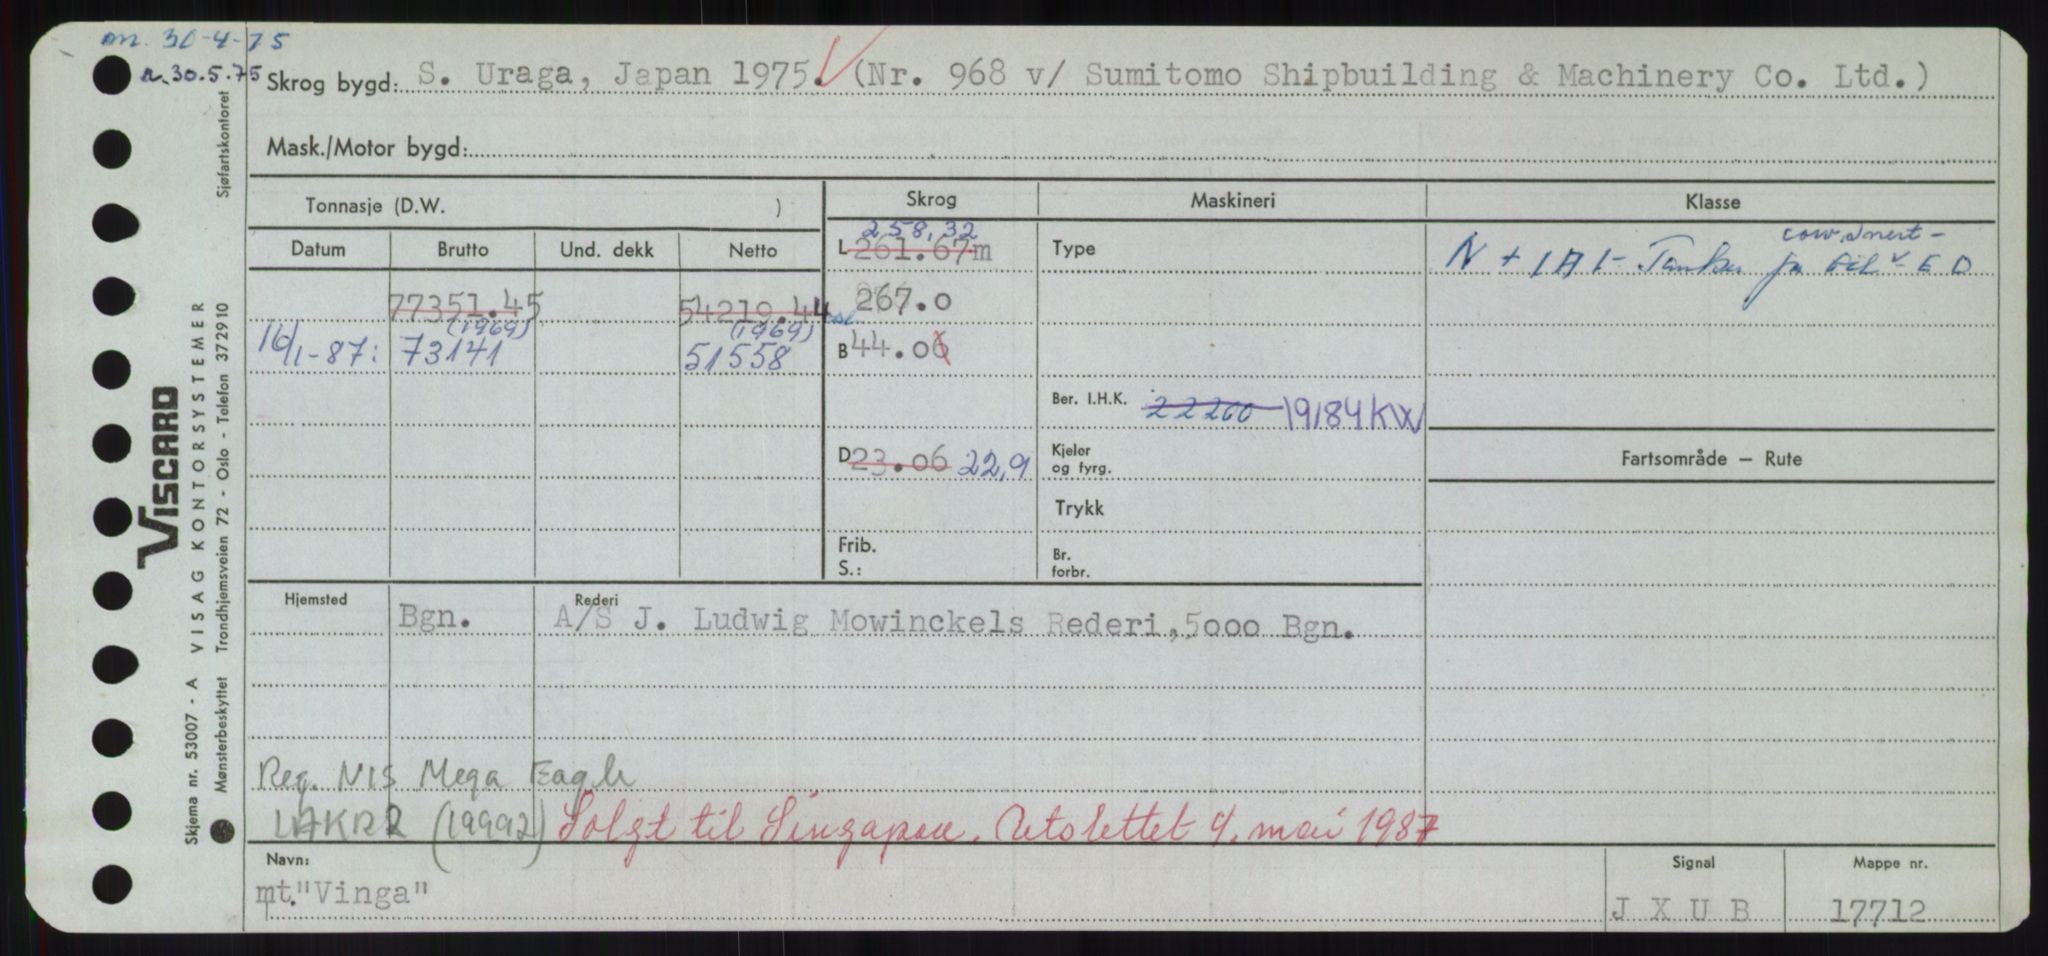 m. 30-4-75
n. 30.5.75
Skrog bygd: S. Uraga, Japan 1975. (Nr. 968 v/ Sumitomo Shipbuilding & Machinery Co. Ltd.)
Mask./Motor bygd:
Tonnasje (D.W. )
Skrog
Maskineri
Klasse
Datum
Brutto
Und. dekk
Netto
258,32
L 261.67m
Type
cow, Inert-
N + 1A1- Tanker for Oil - E 0
77351.45
54219.44
267.0
16/1-87:
(1969)
73141
(1969)
51558
B 44.06
Ber. I.H.K. 22200 19184 KW
D 23.06 22,9
Kjeler
og fyrg.
Fartsområde — Rute
Trykk
Frib.
S.:
Br.
forbr.
Hjemsted
Bgn.
Rederi
A/S J. Ludwig Mowinckels Rederi, 5000 Bgn.
Reg. NIS Mega Eagle
LAKR2 (19992) Solgt til Singapore. Utslettet 4. mai 1987
Navn:
mt. "Vinga"
Signal
J X U B
Mappe nr.
17712
VISCARD
Skjema nr. 53007 - A VISAG KONTORSYSTEMER
Mønsterbeskyttet Trondhjemsveien 72 - Oslo - Telefon 372910 Sjøfartskontoret